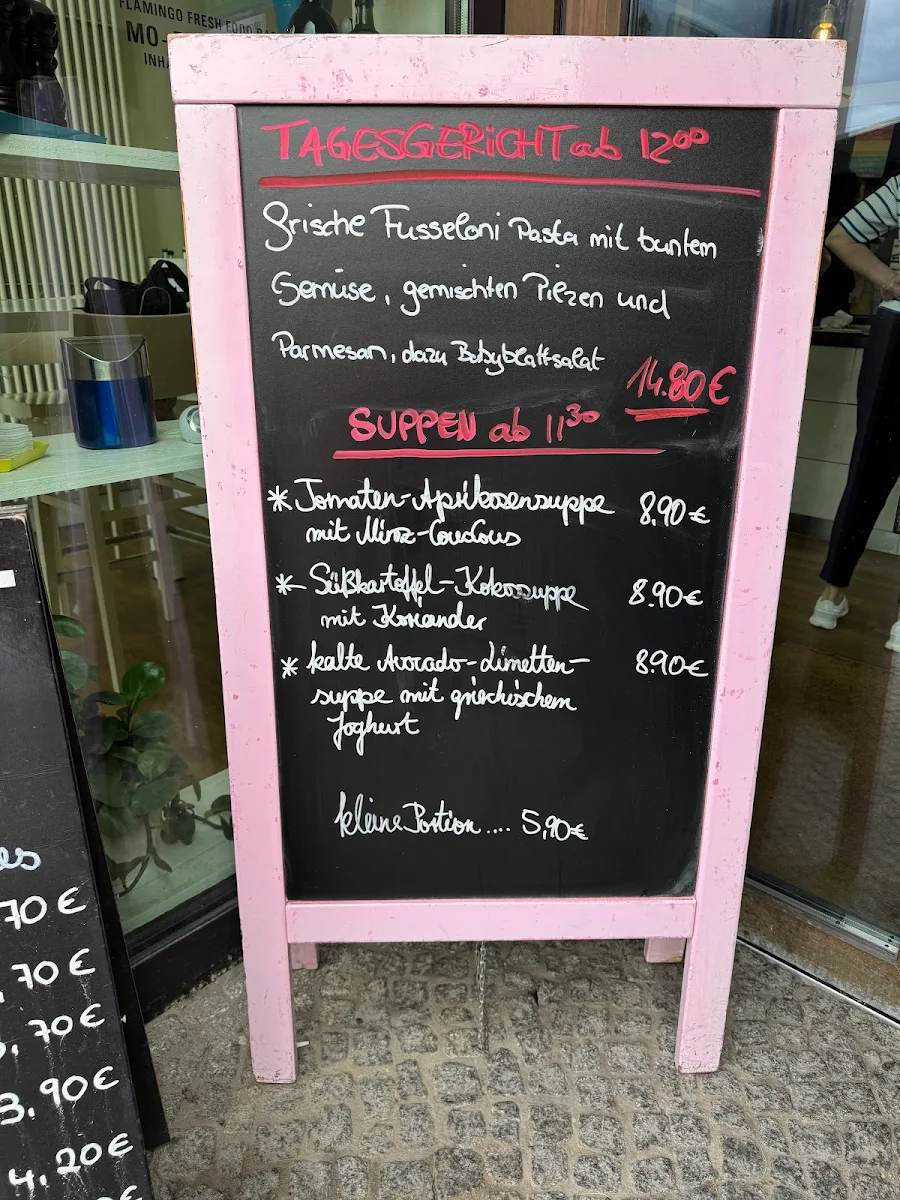 FLAMINGO FRESH FOOD
MO-
INH
TAGESGERICHT ab 12⁰⁰
Frische Fusseloni Pasta mit buntem
Gemüse, gemischten Pilzen und
Parmesan, dazu Babyblattsalat
14.80€
SUPPEN ab 11³⁰
* Tomaten-Aprikosensuppe 8.90€
mit Minz-Couscous
* Süßkartoffel-Kokossuppe 8.90€
mit Koriander
* kalte Avocado-Limetten- 8.90€
suppe mit griechischem
Joghurt
kleine Portion.... 5,90€
es
70€
,70€
,70€
3.90€
4.20€
€